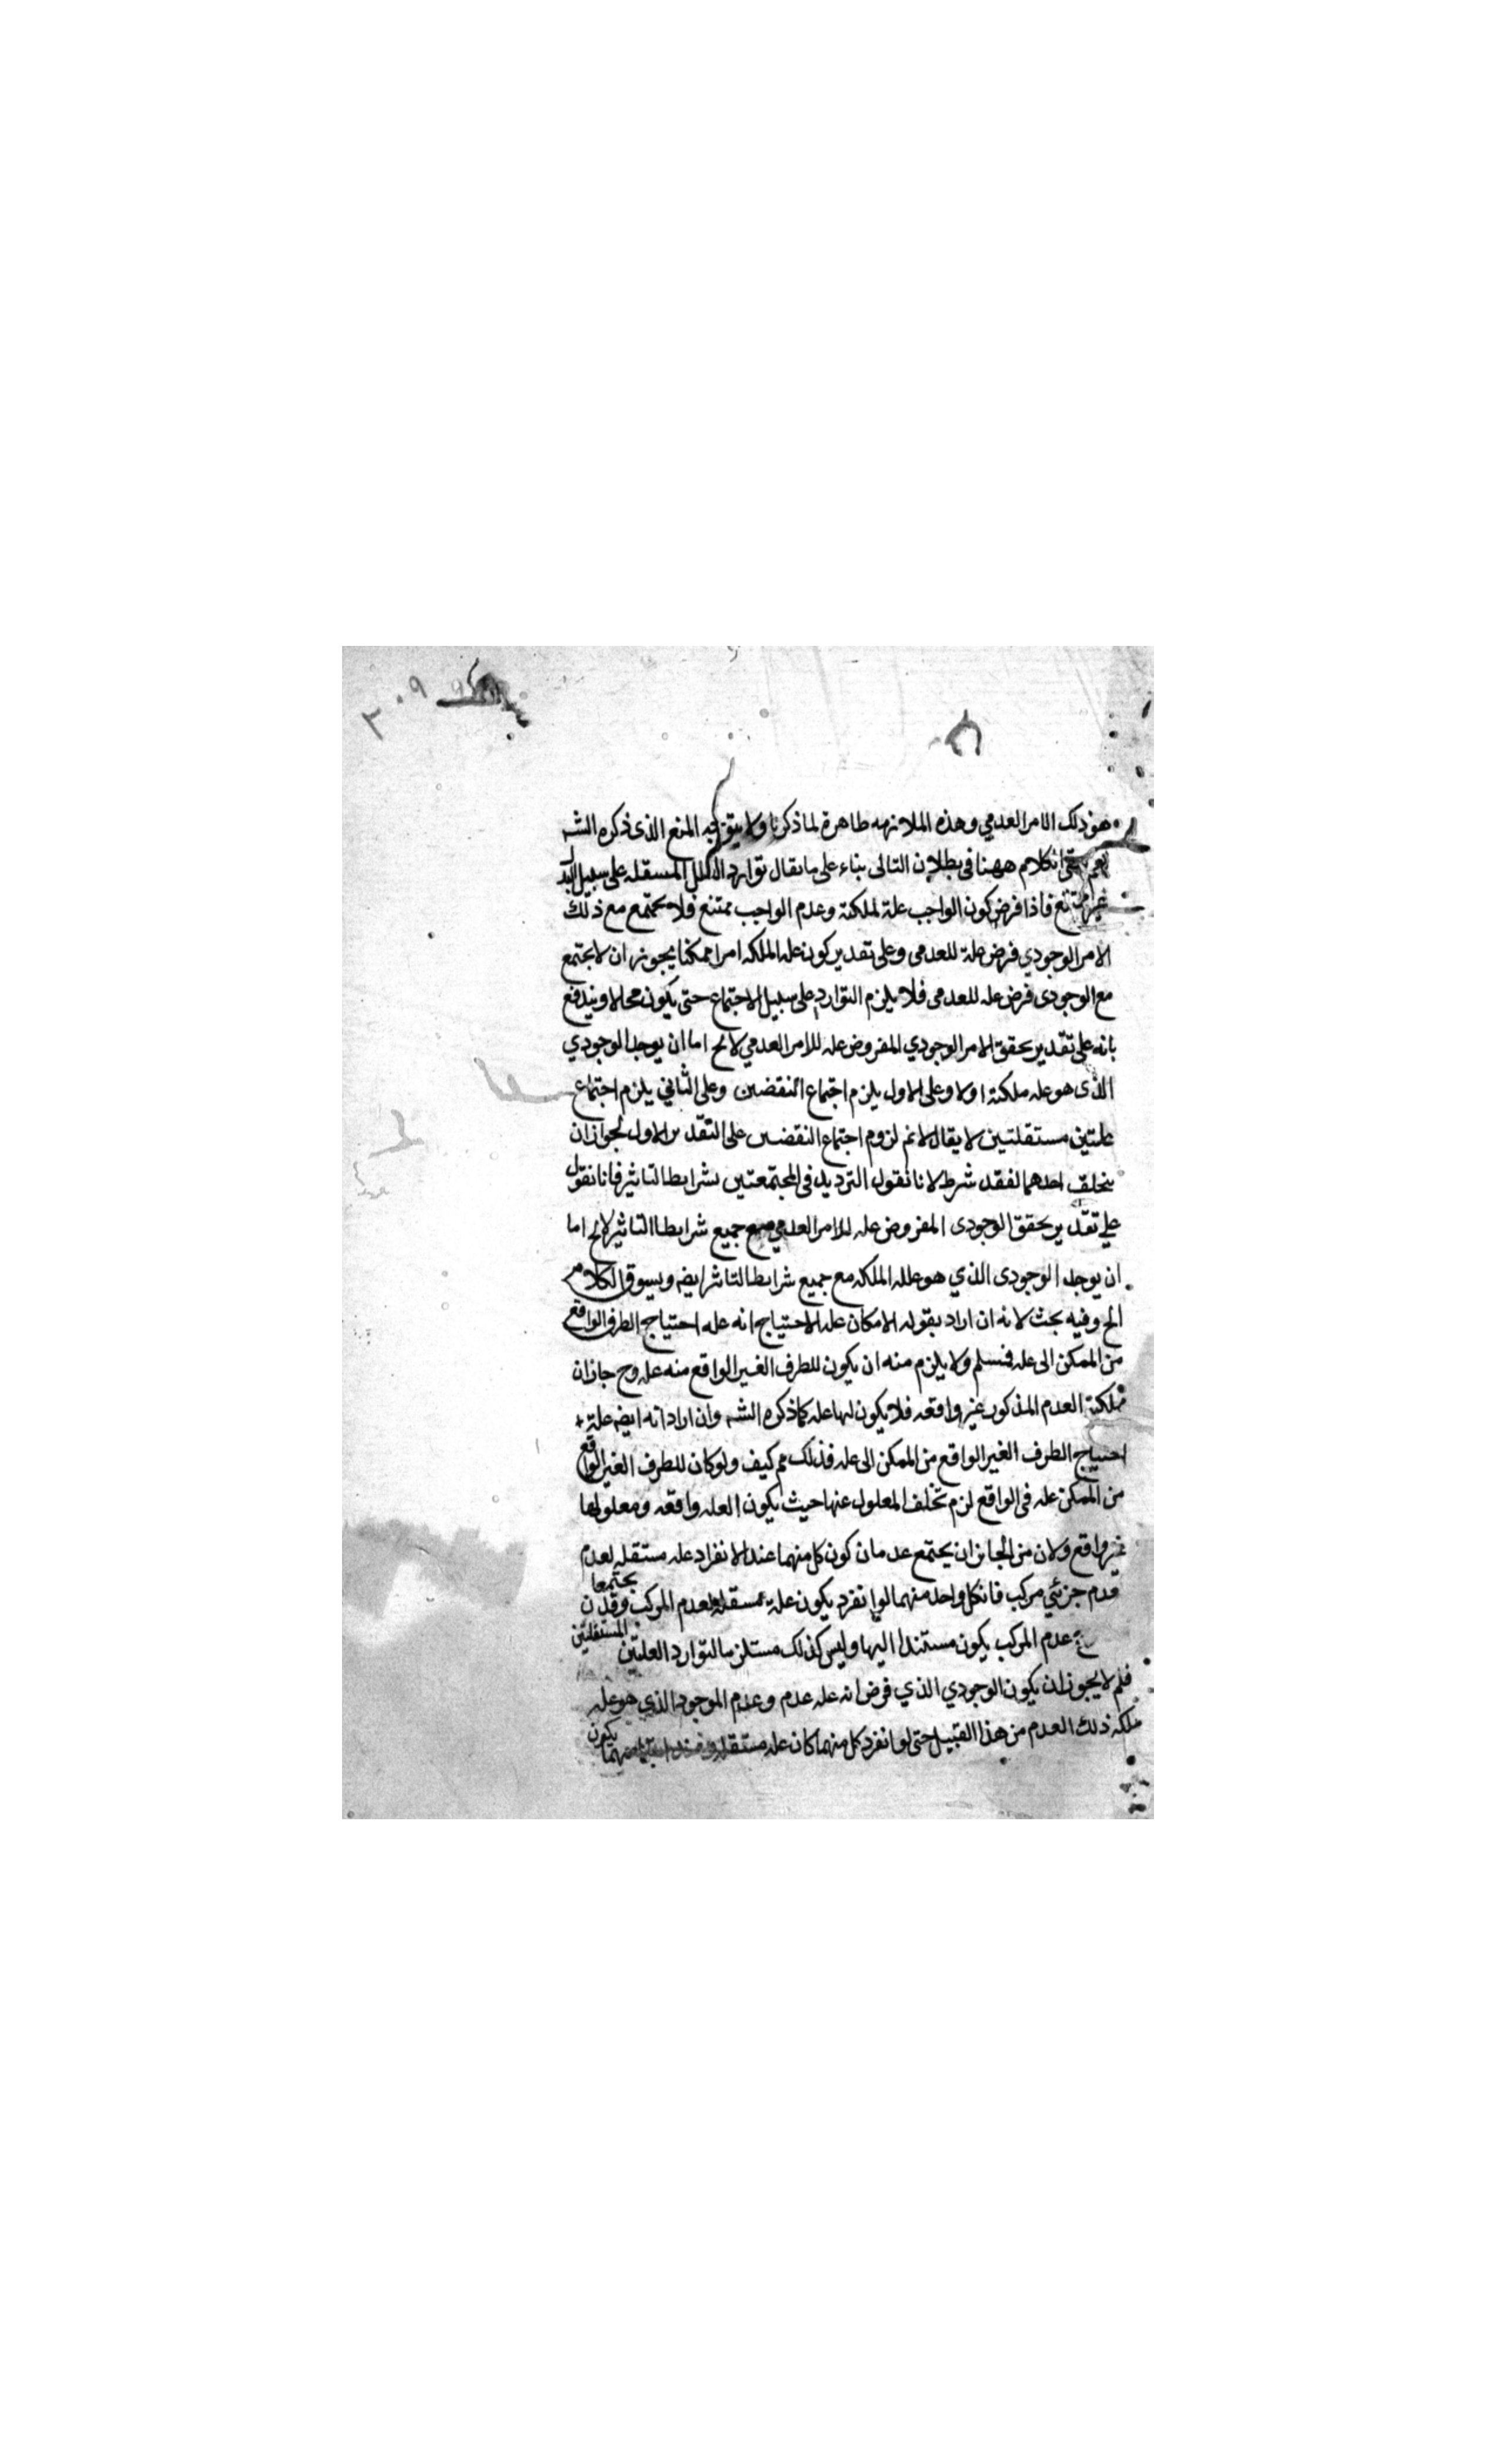 هو ذلك الامر العدمي وهذه الملازمه ظاهرة لما ذكرنا ولا يتوجه المنع الذى ذكره الشه
نعم بقى الكلام ههنا فى بطلان التالى بناء على ما يقال توارد العلل المستقله على سبيل البدل
غير ممتنع فاذا فرض كون الواجب علة لملكته وعدم الواجب ممتنع فلا يجتمع مع ذلك
الامر الوجودي فرض علة للعدمى وعلى تقدير كون عله الملكه امرا ممكنا يجوز ان لا يجتمع
مع الوجودى فرض عله للعدمى فلا يلزم التوارد على سبيل الاجتماع حتى يكون محالا ويندفع
بانه على تقدير تحقق الامر الوجودي المفروض عله للامر العدمي لا يخ اما ان يوجد الوجودي
الذى هو عله ملكته اولا وعلى الاول يلزم اجتماع النقضين وعلى الثاني يلزم اجتماع
علتين مستقلتين لا يقال لا نم لزوم اجتماع النقضين على التقدير الاول لجواز ان
يتخلف احدهما لفقد شرط لانا نقول الترديد فى المجتمعتين بشرايط التاثير فانا نقول
على تقدير تحقق الوجودى المفروض عله للامر العدمي مع جميع شرايط التاثير لا يخ اما
ان يوجد الوجودى الذي هو عله الملكه مع جميع شرايط التاثير ايضه ويسوق الكلام
الخ وفيه بحث لانه ان اراد بقوله الامكان عله الاحتياج انه عله احتياج الطرف الواقع
من الممكن الى عله فمسلم ولا يلزم منه ان يكون للطرف الغير الواقع منه عله وح جاز ان
ملكة العدم المذكور غير واقعه فلا يكون لها عله كما ذكره الشه وان اراد انه ايضه علة
احتياج الطرف الغير الواقع من الممكن الى عله فذلك مم كيف ولو كان للطرف الغير الواقع
من الممكن عله فى الواقع لزم تخلف المعلول عنها حيث يكون العله واقعه ومعلولها
غير واقع ولان من الجايز ان يجتمع عدمان كون كل منهما عند الانفراد عله مستقله لعدم
عدم جزئي مركب فان كل واحد منهما لو انفرد يكون علة مستقله لعدم المركب وقد ن يجتمعا
عدم المركب يكون مستندا اليها وليس كذلك مستلزما لتوارد العلتين المستقلتين
فلم لا يجوز ان يكون الوجودي الذي فرض انه عله عدم وعدم الموجود الذي هو عله
ملكه ذلك العدم من هذا القبيل حتى لو انفرد كل منهما كان عله مستقله يكون